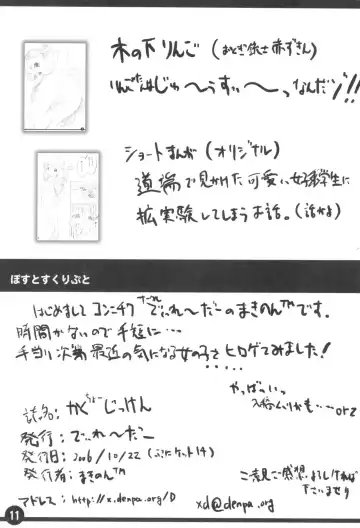 木の下りんご (おとぎ銃士赤ずきん)
りんごたんはじゅ〜うすぃ〜っなんだゾ!!
ショートまんが (オリジナル)
道場で見かけた可愛い女子学生に
拡実験してしまうお話。(話かよ)
ぽすとすくりぷと
はじめまして コンニチワ でぃれ〜だーのまきのん™です。
時間がないので手短に・・・
手当り次第最近の気になる女の子をヒロゲてみました!
やっばいっ
入稿ムリかも・・・orz
誌名: かくちょーじっけん
発行: でぃれ〜だー
発行日: 2006/10/22 (ぷにケット14)
発行者: まきのん™
ご意見ご感想よろしければ
下さいませり
アドレス: http://x.denpa.org/D
xd@denpa.org
11